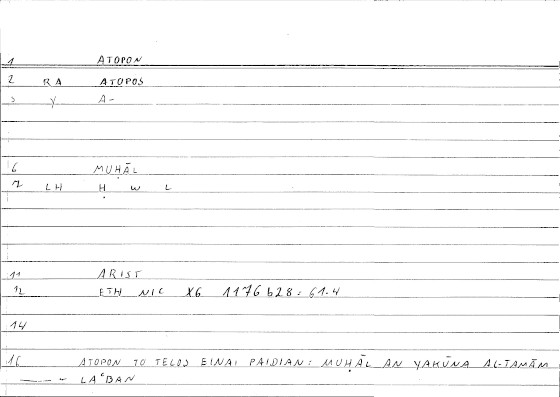 1 ATOPON
2 RA ATOPOS
3 Y A-
6 MUḤĀL
7 LH Ḥ W L
11 ARIST
12 ETH NIC X6 1176b28: 61.4
14
16 ATOPON TO TELOS EINAI PAIDIAN: MUḤĀL AN YAKŪNA AL-TAMĀM
LAʿBAN